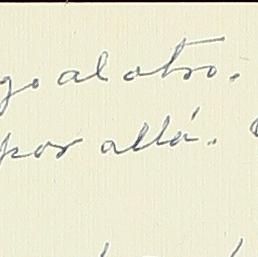 go al otro.
por allá.